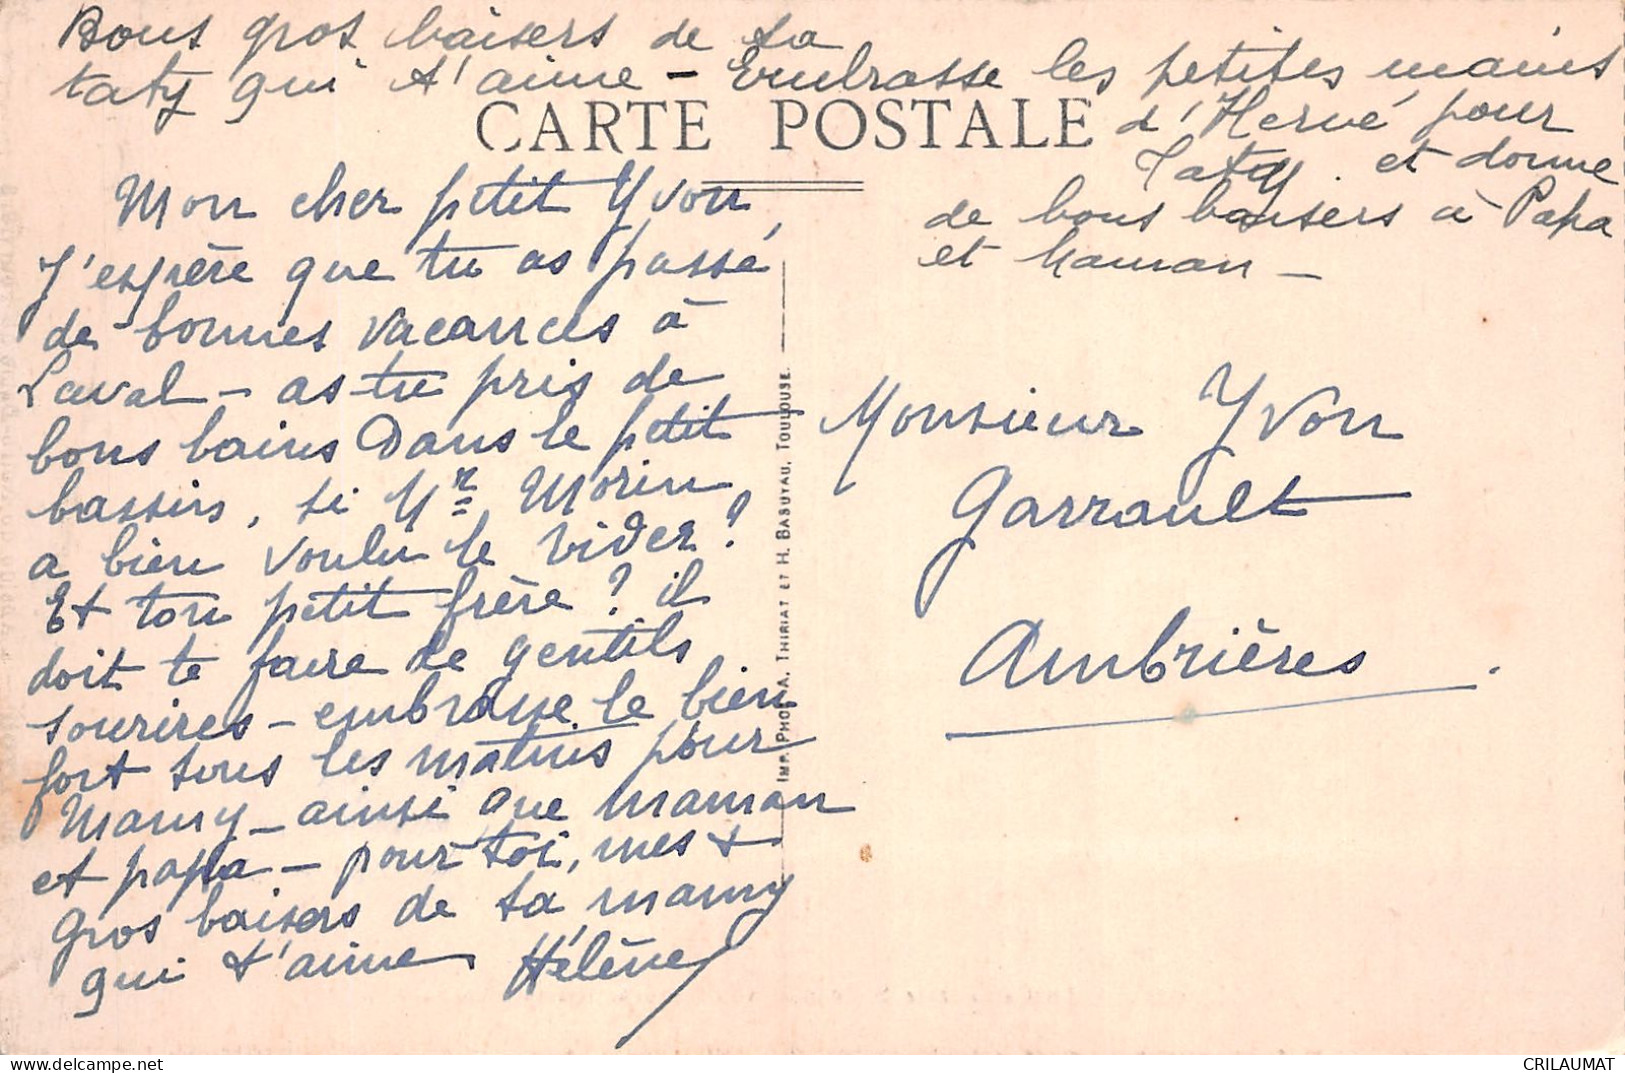 Bons gros baisers de ta
taty qui t'aime - Embrasse les petites mains
d'Hervé pour
Taty. et donne
de bons baisers à Papa
et Maman -
CARTE POSTALE
Mon cher petit Yvon,
J'espère que tu as passé
de bonnes vacances à
Laval - as tu pris de
bons bains dans le petit
bassin, si Mr Morin
a bien voulu le vider?
Et ton petit frère? il
doit te faire de gentils
sourires - embrasse le bien
fort tous les matins pour
Mamy - ainsi que maman
et papa - pour toi, mes +
gros baisers de ta mamy
qui t'aime Hélène
IMP. PHOT. A. THIRIAT ET H. BASUYAU, TOULOUSE.
Monsieur Yvon
Garrault
Ambrières.
CRILAUMAT